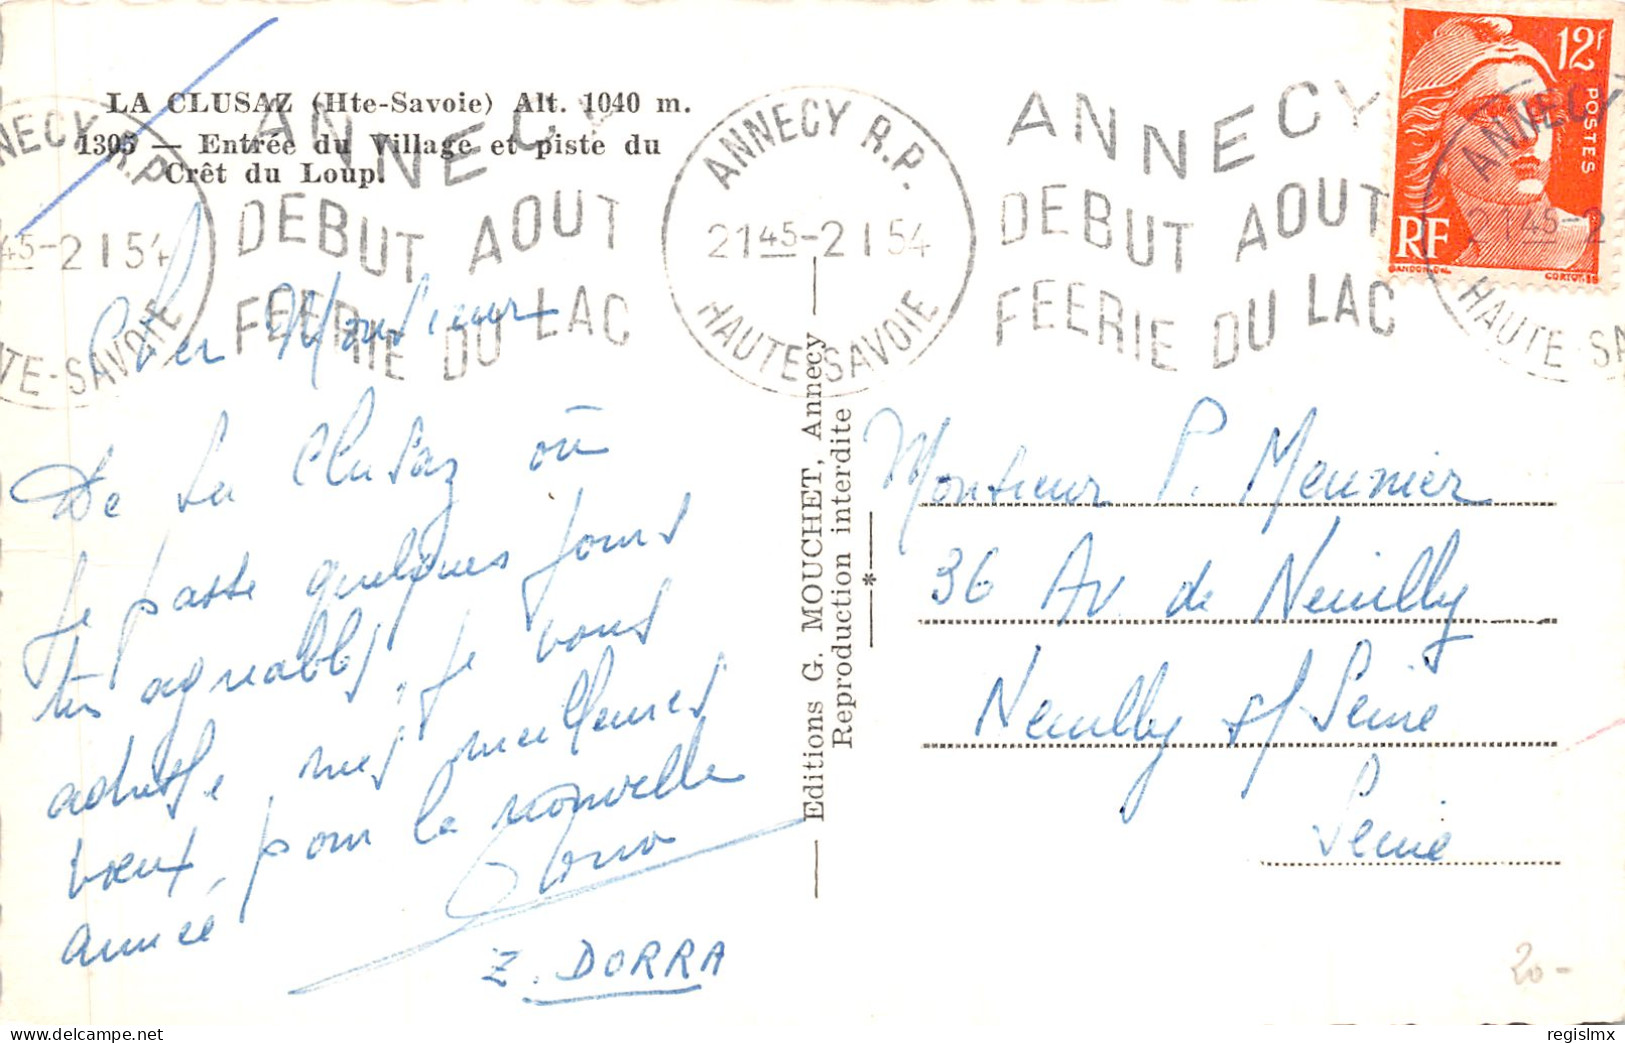 LA CLUSAZ (Hte-Savoie) Alt. 1040 m.
1305 — Entrée du Village et piste du
Crêt du Loup.
ANNECY
DEBUT AOUT
FEERIE DU LAC
ANNECY R.P.
2145-2 1 54
HAUTE-SAVOIE
ANNECY
DEBUT AOUT
FEERIE DU LAC
12F
POSTES
RF
GANDON DEL.
CORTOT SC
ANNECY R.P.
45-2 1 54
HAUTE-SAVOIE
ANNECY
2145-2
HAUTE-SA
Cher Monsieur
De La Clusaz où
je passe quelques jours
très agréables, je vous
adresse mes meilleures
vœux, pour la nouvelle
année
Z. DORRA
Editions G. MOUCHET, Annecy
Reproduction interdite
*
Monsieur P. Meunier
36 Av de Neuilly
Neuilly s/ Seine
Seine
20-
delcampe.net
regislmx